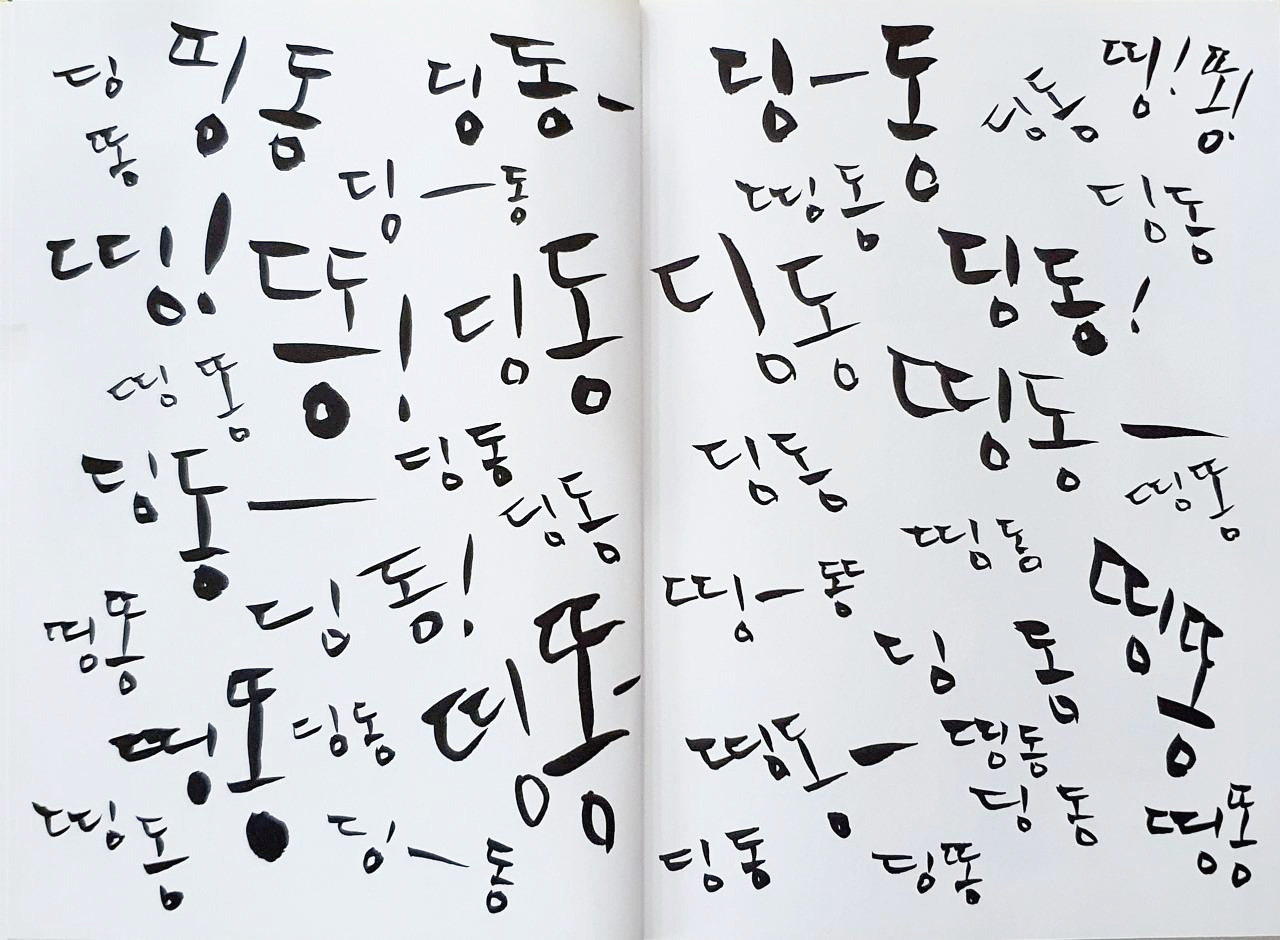 딩 띵동 딩동-
똥
딩-동
띵! 뜽! 딩동
띵똥
딩동-
딩동
딩동
딩동!
띵똥
띵똥
딩동
띵똥-
띵동
딩-동
딩-동
딩동
띵!똥!
띵동
딩동
딩동
딩동!
띵동-
딩동
띵똥
띵동
띵-똥
딩동
띵똥
띵동-
띵동
딩동
띵똥
딩동
딩똥